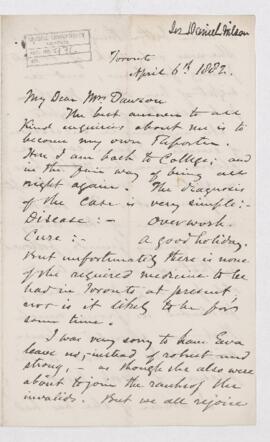 Sir Daniel Wilson
Toronto
April 6th 1882.
My Dear Mrs Dawson
The best answer to all
kind enquiries about me is to
become my own Reporter.
Here I am back to College; and
in the fair way of being all
right again. The diagnosis
of the case is very simple:-
Disease:- Overwork.
Cure:- A good holiday.
But unfortunately there is none
of the required medicine to be
had in Toronto at present
nor is it likely to be for
some time.
I was very sorry to have Eva
leave us, instead of robust and
strong, - as though she also were
about to join the ranks of the
invalids. But we all rejoice